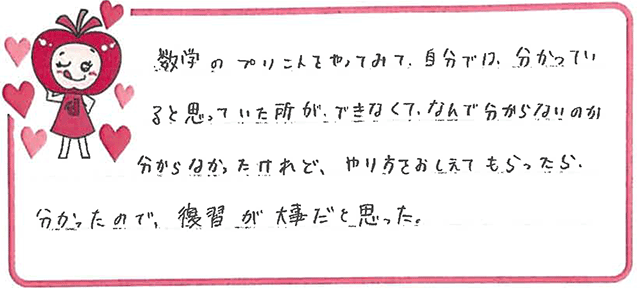 数学のプリントをやってみて、自分では、分かってい
ると思っていた所が、できなくて、なんで分からないのか
分からなかったけれど、やり方をおしえてもらったら、
分かったので、復習が大事だと思った。